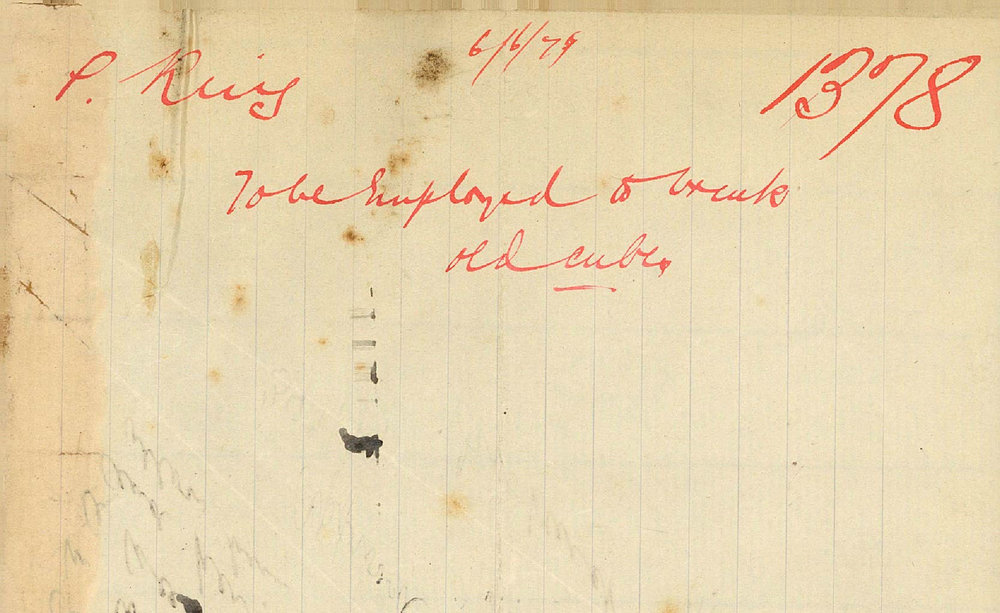 6/6/79
P. King
1378
To be Employed to break
old cubes